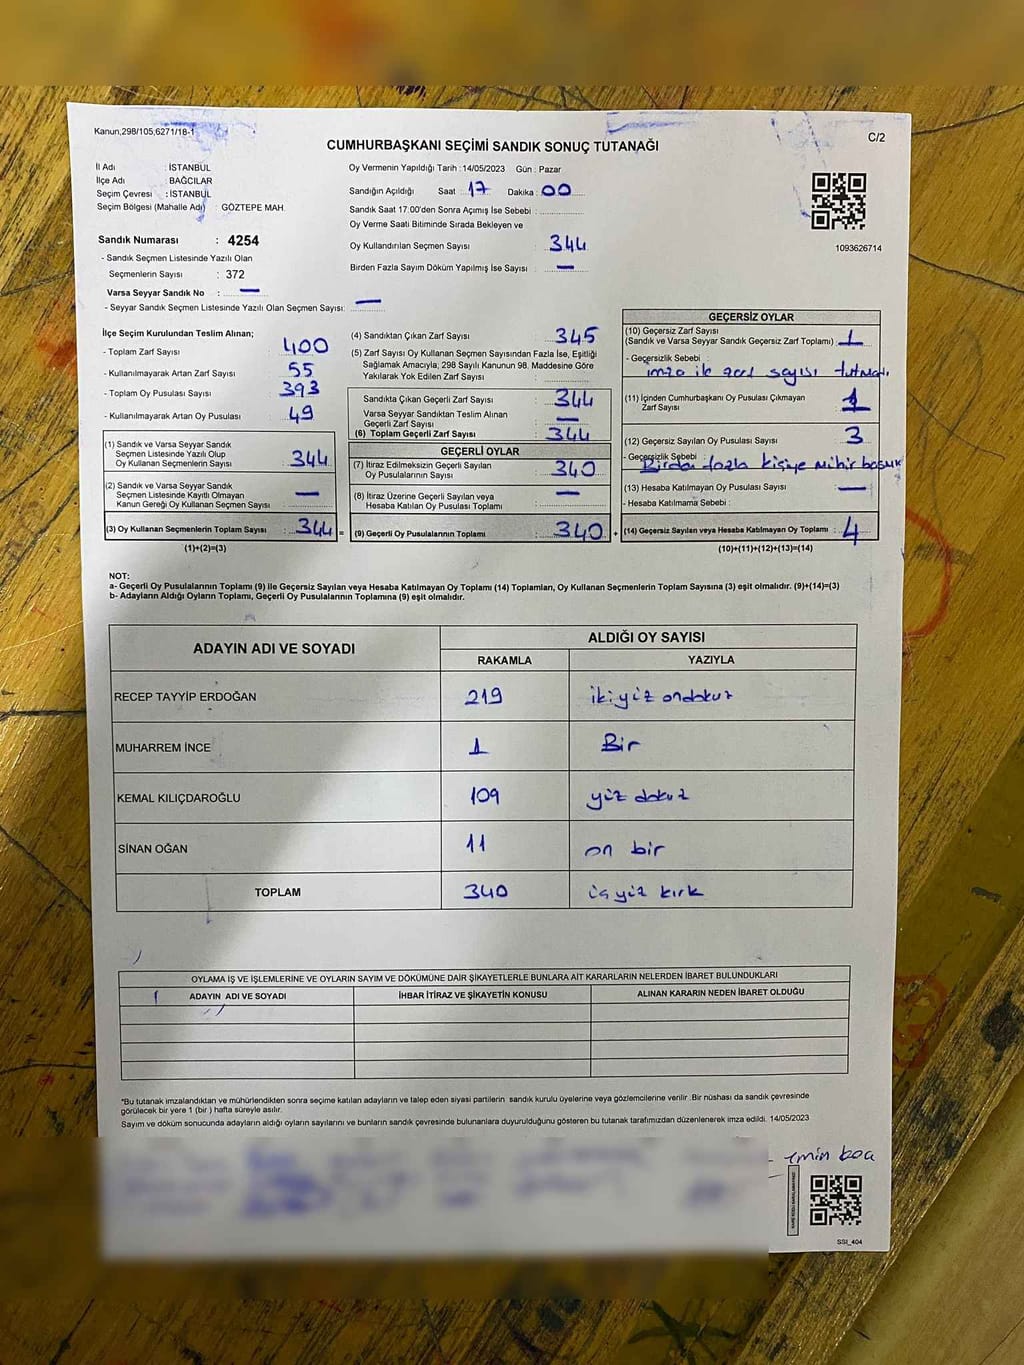 Kanun,298/105,6271/18-1
C/2
CUMHURBAŞKANI SEÇİMİ SANDIK SONUÇ TUTANAĞI
İl Adı : İSTANBUL
İlçe Adı : BAĞCILAR
Seçim Çevresi : İSTANBUL
Seçim Bölgesi (Mahalle Adı) : GÖZTEPE MAH.
Sandık Numarası : 4254
- Sandık Seçmen Listesinde Yazılı Olan
Seçmenlerin Sayısı : 372
Varsa Seyyar Sandık No : —
- Seyyar Sandık Seçmen Listesinde Yazılı Olan Seçmen Sayısı: —
Oy Vermenin Yapıldığı Tarih : 14/05/2023 Gün : Pazar
Sandığın Açıldığı Saat : 17 Dakika : 00
Sandık Saat 17:00'den Sonra Açımış İse Sebebi :
Oy Verme Saati Bitiminde Sırada Bekleyen ve
Oy Kullandırılan Seçmen Sayısı : 344
Birden Fazla Sayım Döküm Yapılmış İse Sayısı : —
1093626714
İlçe Seçim Kurulundan Teslim Alınan;
- Toplam Zarf Sayısı : 400
- Kullanılmayarak Artan Zarf Sayısı : 55
- Toplam Oy Pusulası Sayısı : 393
- Kullanılmayarak Artan Oy Pusulası : 49
(1) Sandık ve Varsa Seyyar Sandık
Seçmen Listesinde Yazılı Olup
Oy Kullanan Seçmenlerin Sayısı : 344
(2) Sandık ve Varsa Seyyar Sandık
Seçmen Listesinde Kayıtlı Olmayan
Kanun Gereği Oy Kullanan Seçmen Sayısı : —
(3) Oy Kullanan Seçmenlerin Toplam Sayısı : 344 =
(1)+(2)=(3)
(4) Sandıktan Çıkan Zarf Sayısı : 345
(5) Zarf Sayısı Oy Kullanan Seçmen Sayısından Fazla İse, Eşitliği
Sağlamak Amacıyla; 298 Sayılı Kanunun 98. Maddesine Göre
Yakılarak Yok Edilen Zarf Sayısı :
Sandıkta Çıkan Geçerli Zarf Sayısı : 344
Varsa Seyyar Sandıktan Teslim Alınan
Geçerli Zarf Sayısı : —
(6) Toplam Geçerli Zarf Sayısı : 344
GEÇERLİ OYLAR
(7) İtiraz Edilmeksizin Geçerli Sayılan
Oy Pusulalarının Sayısı : 340
(8) İtiraz Üzerine Geçerli Sayılan veya
Hesaba Katılan Oy Pusulası Toplamı : —
(9) Geçerli Oy Pusulalarının Toplamı : 340 +
GEÇERSİZ OYLAR
(10) Geçersiz Zarf Sayısı
(Sandık ve Varsa Seyyar Sandık Geçersiz Zarf Toplamı) : 1
- Geçersizlik Sebebi :
imza ile zarf sayısı tutmadı
(11) İçinden Cumhurbaşkanı Oy Pusulası Çıkmayan
Zarf Sayısı : 1
(12) Geçersiz Sayılan Oy Pusulası Sayısı : 3
- Geçersizlik Sebebi :
Birden fazla kişiye mühür basmak
(13) Hesaba Katılmayan Oy Pusulası Sayısı : —
- Hesaba Katılmama Sebebi :
(14) Geçersiz Sayılan veya Hesaba Katılmayan Oy Toplamı : 4
(10)+(11)+(12)+(13)=(14)
NOT:
a- Geçerli Oy Pusulalarının Toplamı (9) ile Geçersiz Sayılan veya Hesaba Katılmayan Oy Toplamı (14) Toplamları, Oy Kullanan Seçmenlerin Toplam Sayısına (3) eşit olmalıdır. (9)+(14)=(3)
b- Adayların Aldığı Oyların Toplamı, Geçerli Oy Pusulalarının Toplamına (9) eşit olmalıdır.
ADAYIN ADI VE SOYADI
ALDIĞI OY SAYISI
RAKAMLA YAZIYLA
RECEP TAYYİP ERDOĞAN 219 ikiyüz ondokuz
MUHARREM İNCE 1 Bir
KEMAL KILIÇDAROĞLU 109 yüz dokuz
SİNAN OĞAN 11 on bir
TOPLAM 340 üçyüz kırk
OYLAMA İŞ VE İŞLEMLERİNE VE OYLARIN SAYIM VE DÖKÜMÜNE DAİR ŞİKAYETLERLE BUNLARA AİT KARARLARIN NELERDEN İBARET BULUNDUKLARI
ADAYIN ADI VE SOYADI İHBAR İTİRAZ VE ŞİKAYETİN KONUSU ALINAN KARARIN NEDEN İBARET OLDUĞU
*Bu tutanak imzalandıktan ve mühürlendikten sonra seçime katılan adayların ve talep eden siyasi partilerin sandık kurulu üyelerine veya gözlemcilerine verilir .Bir nüshası da sandık çevresinde
görülecek bir yere 1 (bir ) hafta süreyle asılır.
Sayım ve döküm sonucunda adayların aldığı oyların sayılarını ve bunların sandık çevresinde bulunanlara duyurulduğunu gösteren bu tutanak tarafımızdan düzenlenerek imza edildi. 14/05/2023
SSI_404